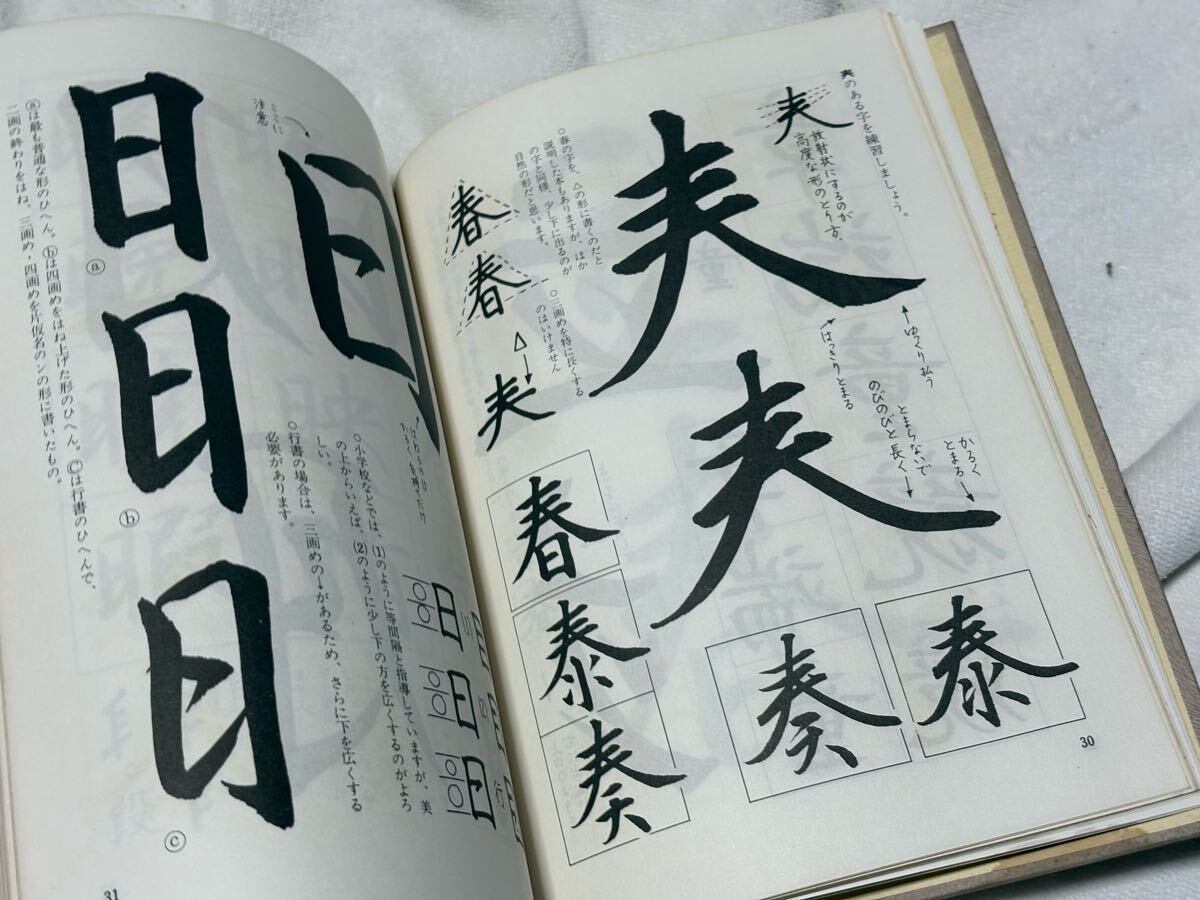 𡗗のある字を練習しましょう。
夫
放射状にするのが
高度な形のとり方。
ゆっくり払う
はっきりとまる
かるく
とまる
とまらないで
のびのびと長く
○春の字を、△の形に書くのだと
説明した本もありますが、ほか
の字と同様、少し下に出るのが
自然の形だと思います。
春
春
○三画めを特に長くする
のはいけません
△
春
泰
奏
奏
泰
30
ここに
注意
日
ⓐ
日
ⓑ
日
ⓒ
ⓐは最も普通な形のひへん。ⓑは四画めをはね上げた形のひへん。ⓒは行書のひへんで、
二画の終わりをはね、三画め・四画めを片仮名のンの形に書いたもの。
○小学校などでは、⑴のように等間隔と指導していますが、美
の上からいえば、⑵のように少し下の方を広くするのがよろ
しい。
○行書の場合は、三画めの→があるため、さらに下を広くする
必要があります。
日
日
日
31